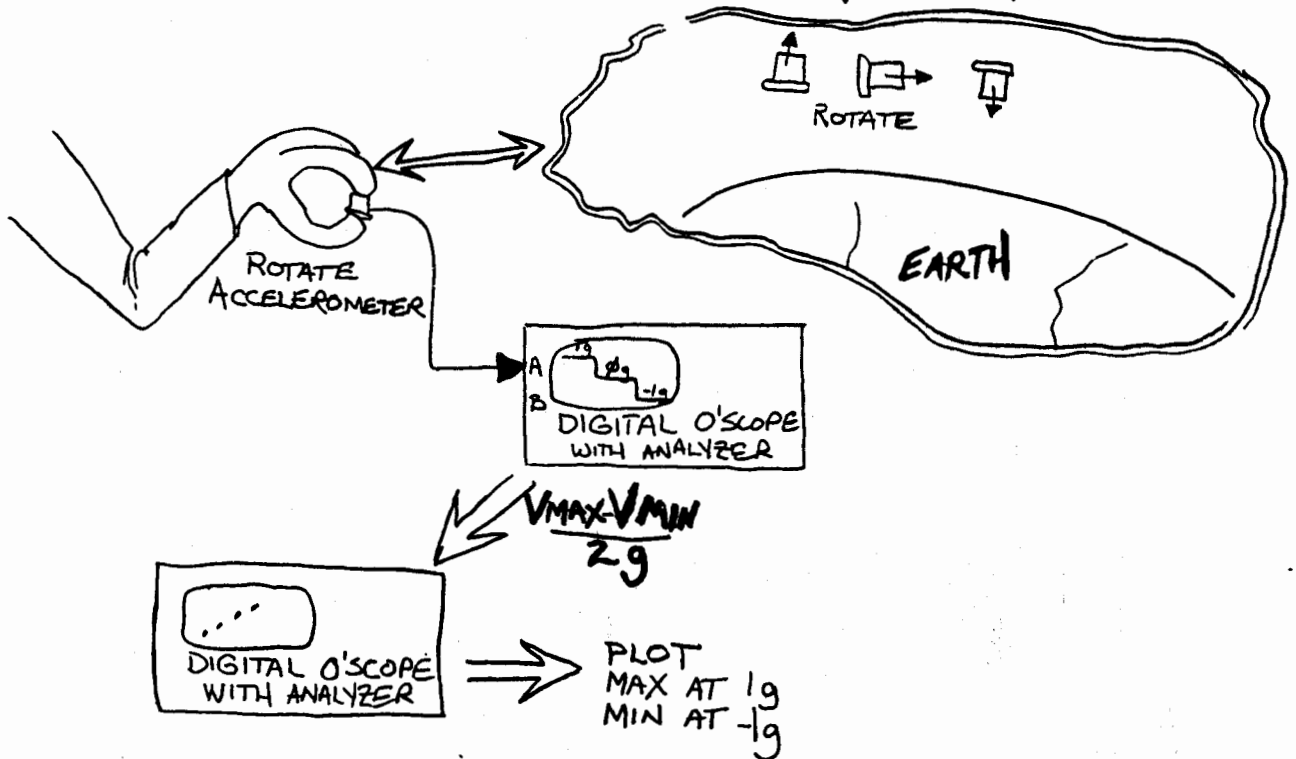 ROTATE
EARTH
ROTATE
ACCELEROMETER
A
B
1g
φg
-1g
DIGITAL O'SCOPE
WITH ANALYZER
VMAX-VMIN
2g
DIGITAL O'SCOPE
WITH ANALYZER
PLOT
MAX AT 1g
MIN AT -1g